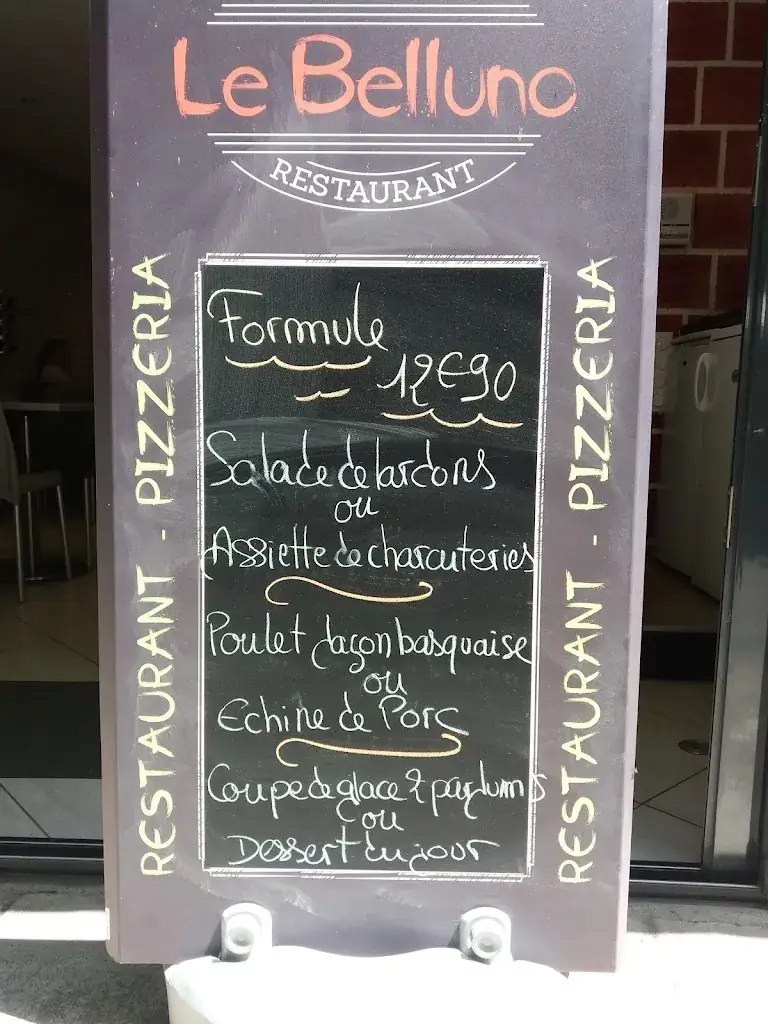 Le Belluno
RESTAURANT
RESTAURANT - PIZZERIA
Formule
12€90
Salade de lardons
ou
Assiette de charcuteries
Poulet façon basquaise
ou
Echine de Porc
Coupe de glace 2 parfums
ou
Dessert du jour
RESTAURANT - PIZZERIA